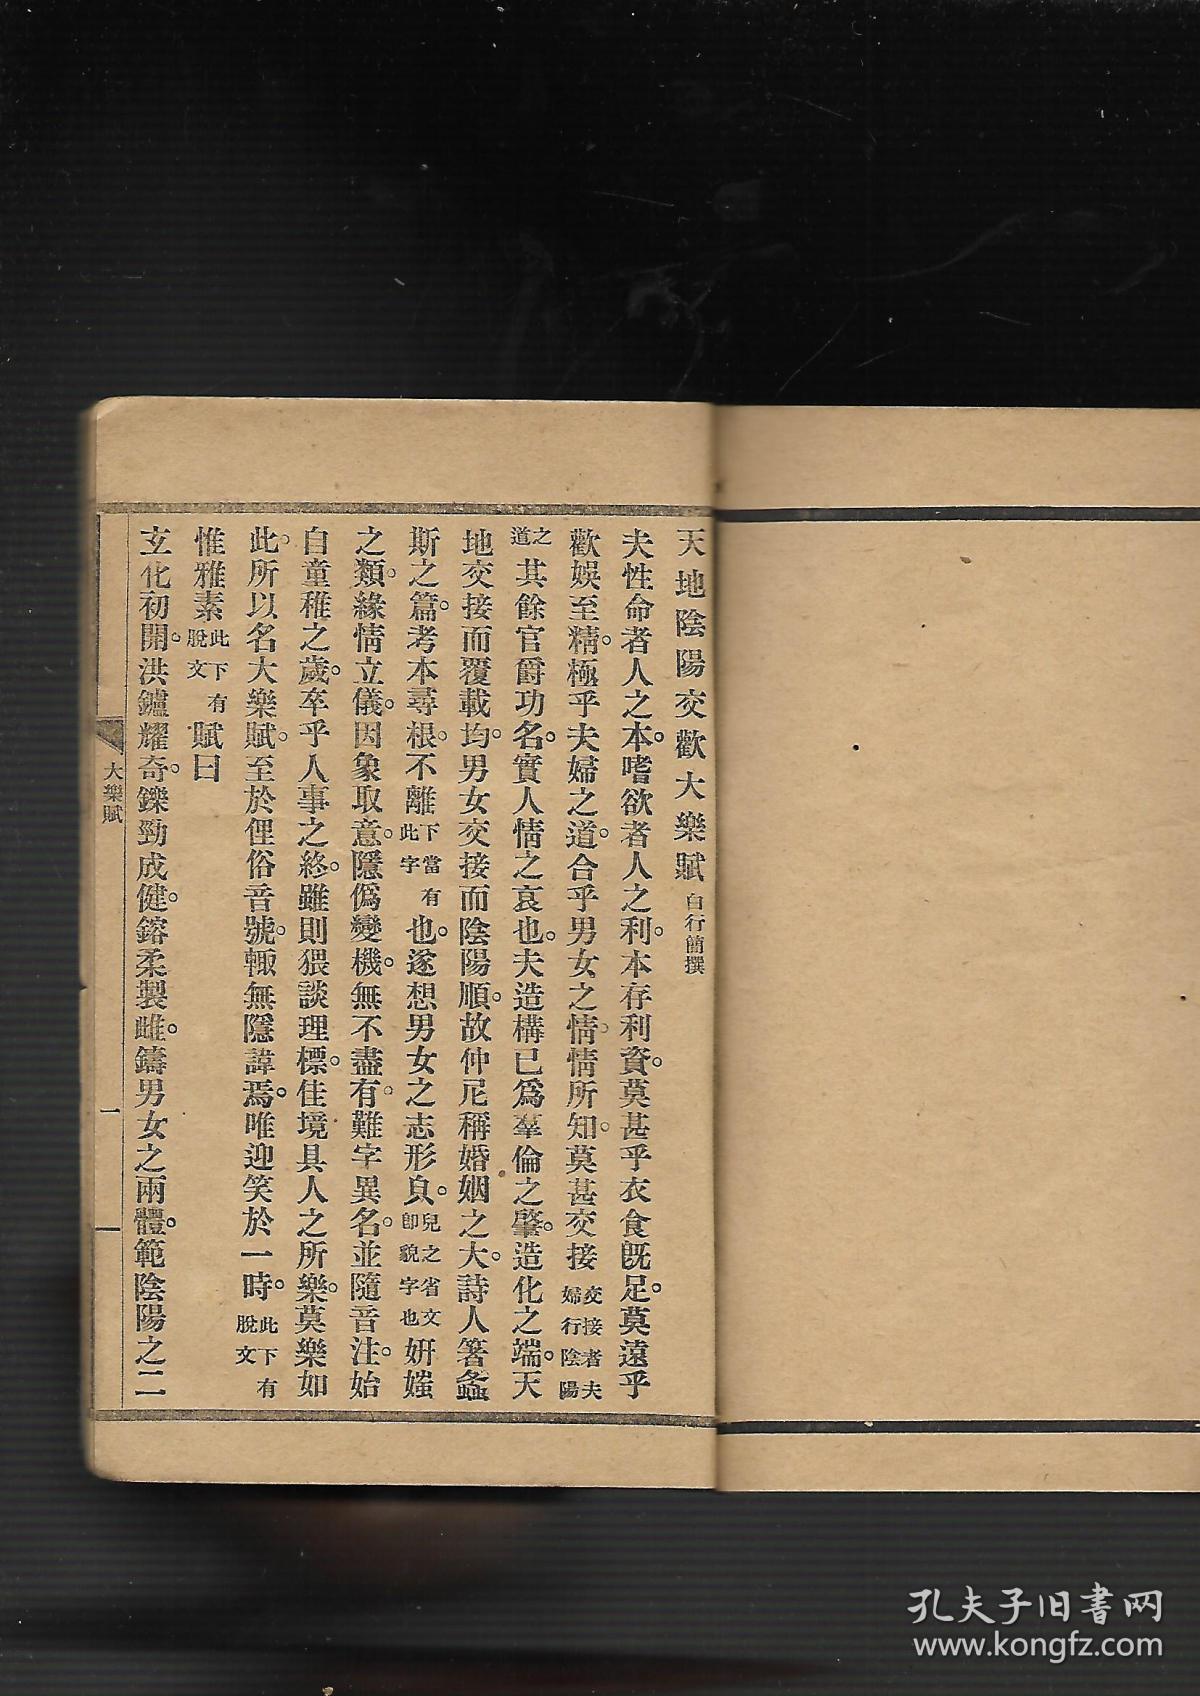 天地陰陽交歡大樂賦 白行簡撰
夫性命者人之本。嗜欲者人之利。本存利資。莫甚乎衣食既足。莫遠乎
歡娛至精。極乎夫婦之道。合乎男女之情。情所知。莫甚交接 交接者夫婦行陰陽
之道 其餘官爵功名。實人情之哀也。夫造構已爲羣倫之肇。造化之端。天
地交接而覆載均。男女交接而陰陽順。故仲尼稱婚姻之大。詩人箸螽
斯之篇。考本尋根。不離 下當有此字 也。遂想男女之志形皃。 皃之省文卽貌字也 妍媸
之類。緣情立儀。因象取意。隱僞變機。無不盡有。難字異名。並隨音注。始
自童稚之歲。卒乎人事之終。雖則猥談理標。佳境具人之所樂。莫樂如
此。所以名大樂賦。至於俚俗音號。輙無隱諱焉。唯迎笑於一時。 此下有脫文
惟雅素 此下有脫文 賦曰
玄化初開。洪鑪耀奇。鑠勁成健。鎔柔製雌。鑄男女之兩體。範陰陽之二
大樂賦
一
孔夫子旧书网
www.kongfz.com